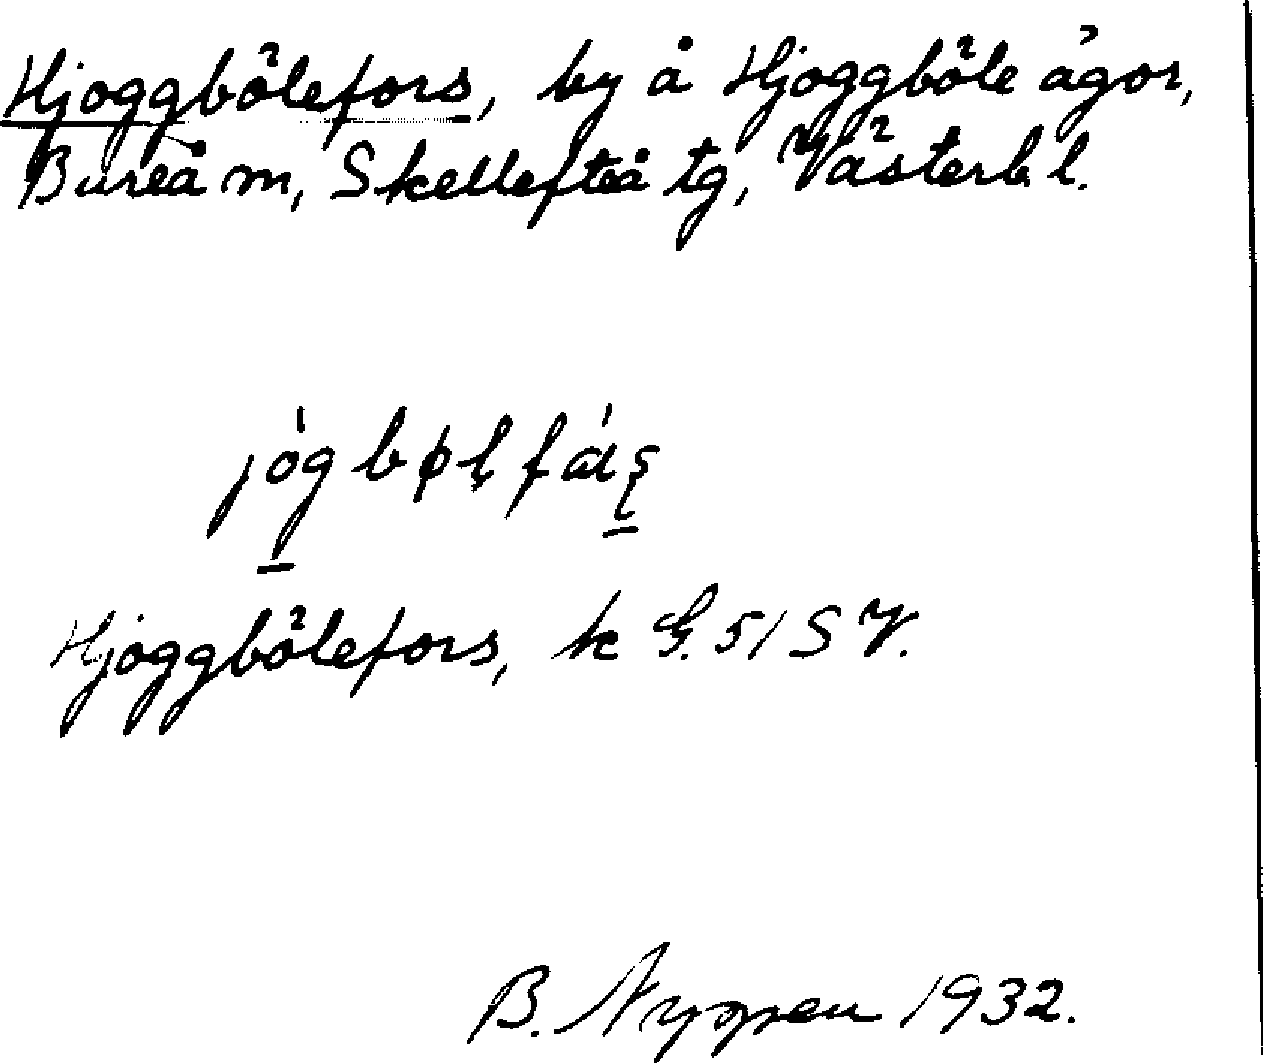 Hjoggbölefors, by å Hjoggböle ägor,
Bureå m, Skellefteå tg, Västerb. l.
jógbøl̥fáʂ
Hjoggbölefors, k G. 51 SV.
B. 1932.